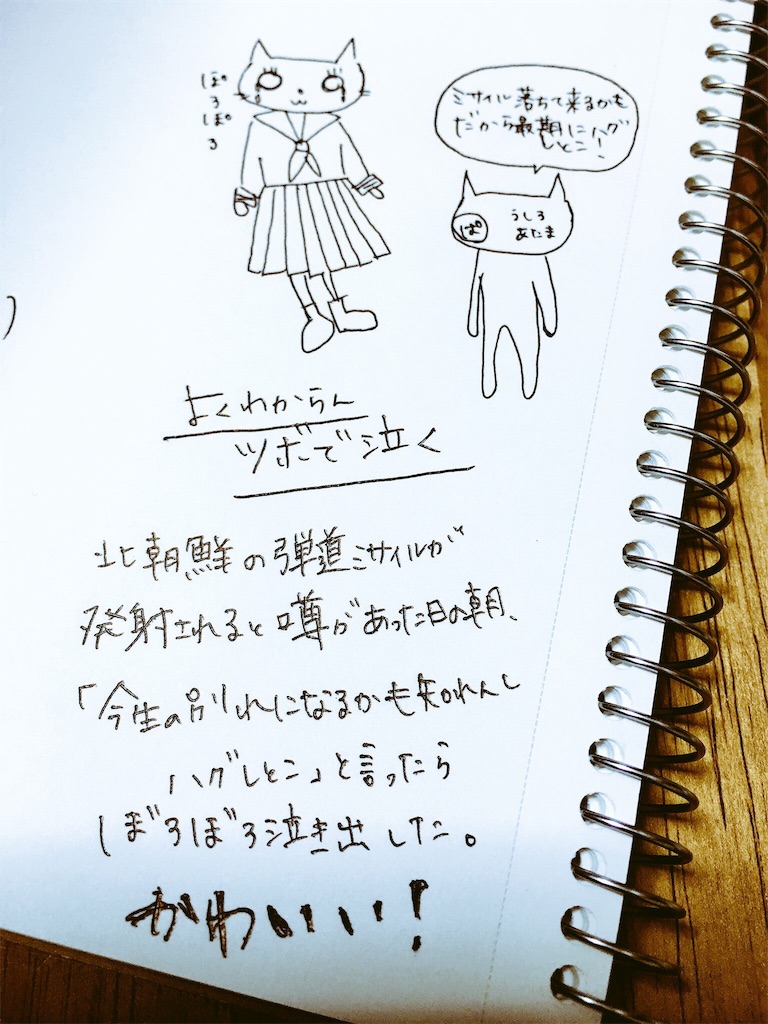 ぽろぽろ
ミサイル落ちて来るかも
だから最期にハグ
しとこ!
ぱ
うしろ
あたま
よくわからん
ツボで泣く
北朝鮮の弾道ミサイルが
発射されると噂があった日の朝、
「今生の別れになるかも知れんし
ハグしとこ」と言ったら
ぼろぼろ泣き出した。
かわいい!